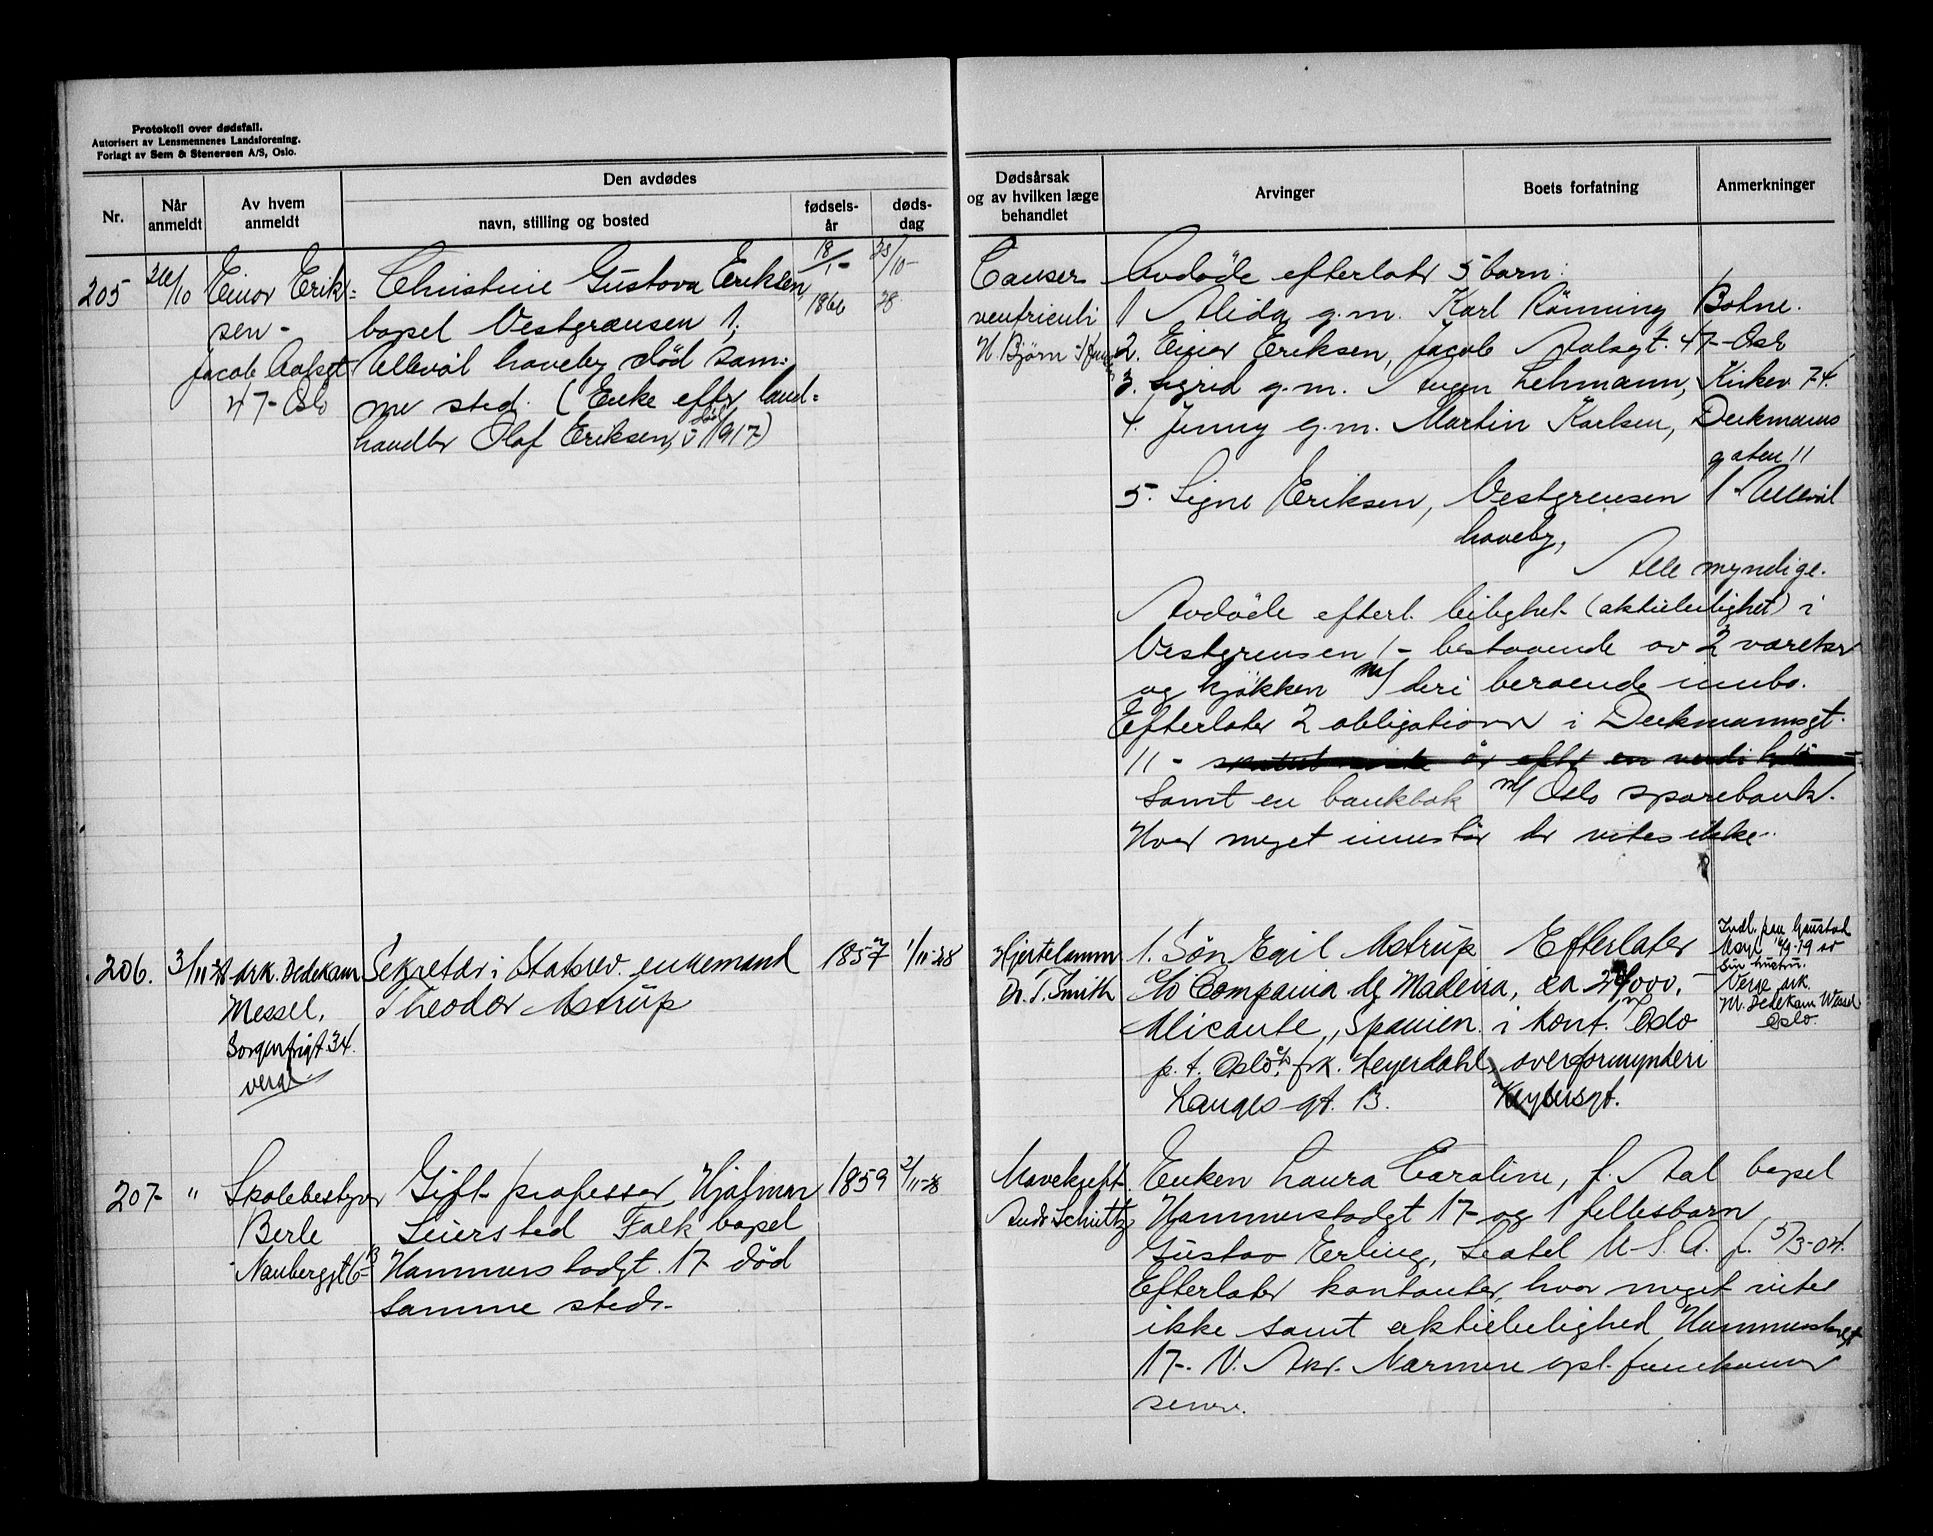 Protokoll over dødsfall.
Autorisert av Lensmennenes Landsforening.
Forlagt av Sem & Stenersen A/S, Oslo.
Nr.
Når anmeldt
Av hvem anmeldt
Den avdødes
navn, stilling og bosted
fødsels-år
døds-dag
Dødsårsak og av hvilken læge behandlet
Arvinger
Boets forfatning
Anmerkninger
205
26/10
Einar Erik=
sen -
Jacob Aalsgt
47- Oslo
Christine Gustava Eriksen
bopel Vestgrænsen 1,
Ullevål haveby død sam=
me sted. (Enke efter land=
handler Olaf Eriksen, død i 1917)
18/1-
1866
25/10-
28
Cancer
ventriculi
H Bjørn
Avdøde efterlater 5 barn:
1 Alida g.m. Karl Rønning Bøhne.
2. Einar Eriksen, Jacob Aalsgt. 47- Oslo
3. Sigrid g.m. Lehmann, Kirkev 74.
4. Jenny g.m. Martin Karlsen, Deichmanns
gaten 11
5. Signe Eriksen, Vestgrensen 1 Ullevål
haveby,
Alle myndige.
Avdøde efterl. leilighet (aktieleilighet) i
Vestgrensen 1- bestaaende av 2 værelser
og kjøkken m/ deri beroende innbo.
Efterlater 2 obligationer i Deichmannsgt.
11 -
Samt en bankbok m/ Oslo sparebank.
Hvor meget innestår der vites ikke.
206.
3/11 28
Ark. Dedekam
Messel,
Sorgenfrigt 34.
verge
Sekretær i Statsrev. enkemand
Theodor Astrup
1857
1/11-28
Hjertelamm
Dr. T. Smith
1. Søn Egil Astrup
c/o Compania de Madeira,
Alicante, Spanien.
p.t. Oslo, c/o frk. Heyerdahl,
Langes gt. 13.
Efterlater
ca 24000,
i kont. m/ Oslo
overformynderi
Keysersgt.
Indl. paa Gaustad
Asyl 16/9-19 av
sin hustru.
Verge ark.
M. Dedekam Messel
Oslo.
207-
"
Skolebestyrer
Berle
Nanbergjt 6-13
Gift professor Hjalmar
Seiersted Falk bopel
Hammerstadgt. 17 død
samme sted.
1859
2/11-28
Mavekreft
Andr Schultz
Enken Laura Caroline, f. Aal bopel
Hammerstadgt 17- og 1 fellesbarn
Gustav Erling, Seatel U.S.A. f. 5/3-04.
Efterlater kontanter, hvor meget vites
ikke samt aktieleilighed Hammerstadgt
17-. V. Akr. Nærmere opl. fremkommer
senere.